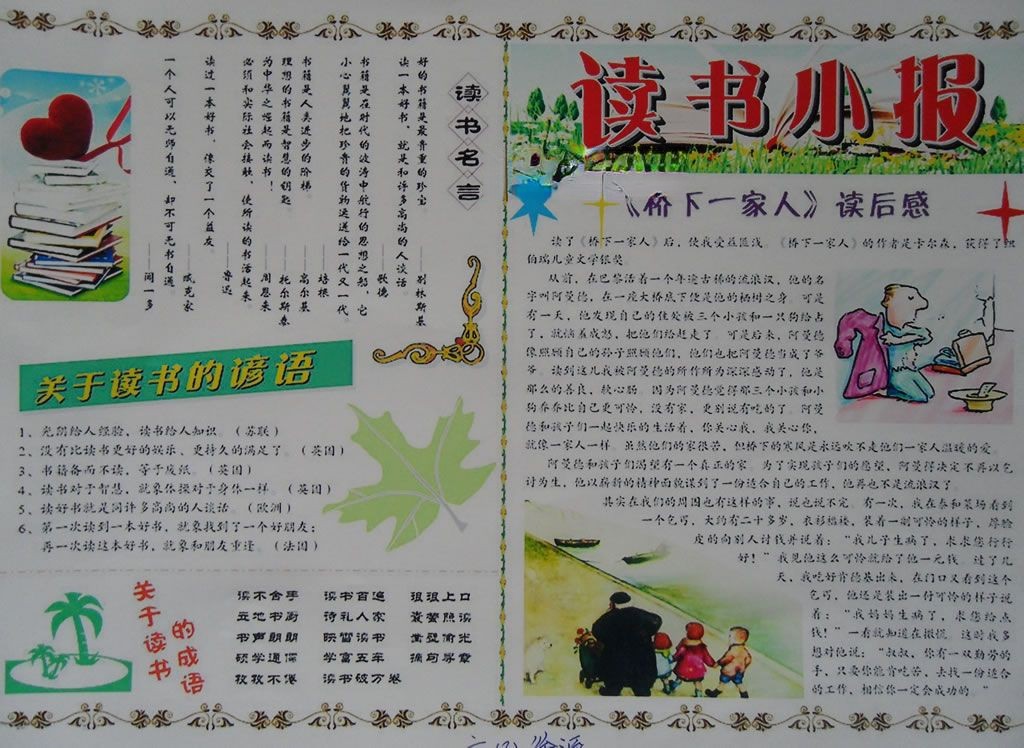 读书名言
好的书籍是最贵重的珍宝 ——别林斯基
读一本好书，就是和许多高尚的人谈话。 ——歌德
书籍是在时代的波涛中航行的思想之船，它
小心翼翼地把珍贵的货物运送给一代又一代。 ——培根
书籍是人类进步的阶梯 ——高尔基
理想的书籍是智慧的钥匙 ——托尔斯泰
为中华之崛起而读书！ ——周恩来
必须和实际社会接触，使所读的书活起来 ——鲁迅
读过一本好书，像交了一个益友。 ——臧克家
一个人可以无师自通，却不可无书自通。 ——闻一多
关于读书的谚语
1、光阴给人经验，读书给人知识。（苏联）
2、没有比读书更好的娱乐、更持久的满足了。（英国）
3、书籍备而不读，等于废纸。（英国）
4、读书对于智慧，就象体操对于身体一样。（英国）
5、读好书就是同许多高尚的人谈话。（欧洲）
6、第一次读到一本好书，就象找到了一个好朋友；
再一次读这本好书，就象和朋友重逢。（法国）
关于读书
的成语
读不舍手 读书百遍 琅琅上口
立地书厨 诗礼人家 囊萤照读
书声朗朗 映雪读书 凿壁偷光
硕学通儒 学富五车 摘句寻章
孜孜不倦 读书破万卷
读书小报
《桥下一家人》读后感
读了《桥下一家人》后，使我受益匪浅。《桥下一家人》的作者是卡尔森，获得了纽
伯瑞儿童文学银奖。
从前，在巴黎活着一个年逾古稀的流浪汉，他的名
字叫阿曼德，在一座大桥底下便是他的栖树之身。可是
有一天，他发现自己的住处被三个小孩和一只狗给占
了，就恼羞成怒，把他们给赶走了。可是后来，阿曼德
像照顾自己的孙子照顾他们，他们也把阿曼德当成了爷
爷。读到这儿我被阿曼德的所作所为深深感动了，他是
那么的善良，软心肠。因为阿曼德觉得那三个小孩和小
狗乔乔比自己更可怜，没有家，更别说有吃的了。阿曼
德和孩子们一起快乐的生活着，你关心我，我关心你，
就像一家人一样。虽然他们的家很苦，但桥下的寒风是永远吹不走他们一家人温暖的爱。
阿曼德和孩子们渴望有一个真正的家。为了实现孩子们的愿望，阿曼得决定不再以乞
讨为生，他以崭新的精神面貌谋到了一份适合自己的工作，他再也不是流浪汉了。
其实在我们的周围也有这样的事，说也说不完。有一次，我在泰和菜场看到
一个乞丐，大约有二十多岁，衣衫褴褛，装着一副可怜的样子，厚脸
皮的向别人讨钱并说着：“我儿子生病了，求求您行行
好！”我见他这么可怜就给了他一元钱。过了几
天，我吃好肯德基出来，在门口又看到这个
乞丐，他还是装出一付可怜的样子说
着：“我妈妈生病了，求您给点
钱！”一看就知道在撒谎。这时我多
想对他说：“叔叔，你有一双勤劳的
手，只要你能肯吃苦，去找一份适合
的工作，相信你一定会成功的。”